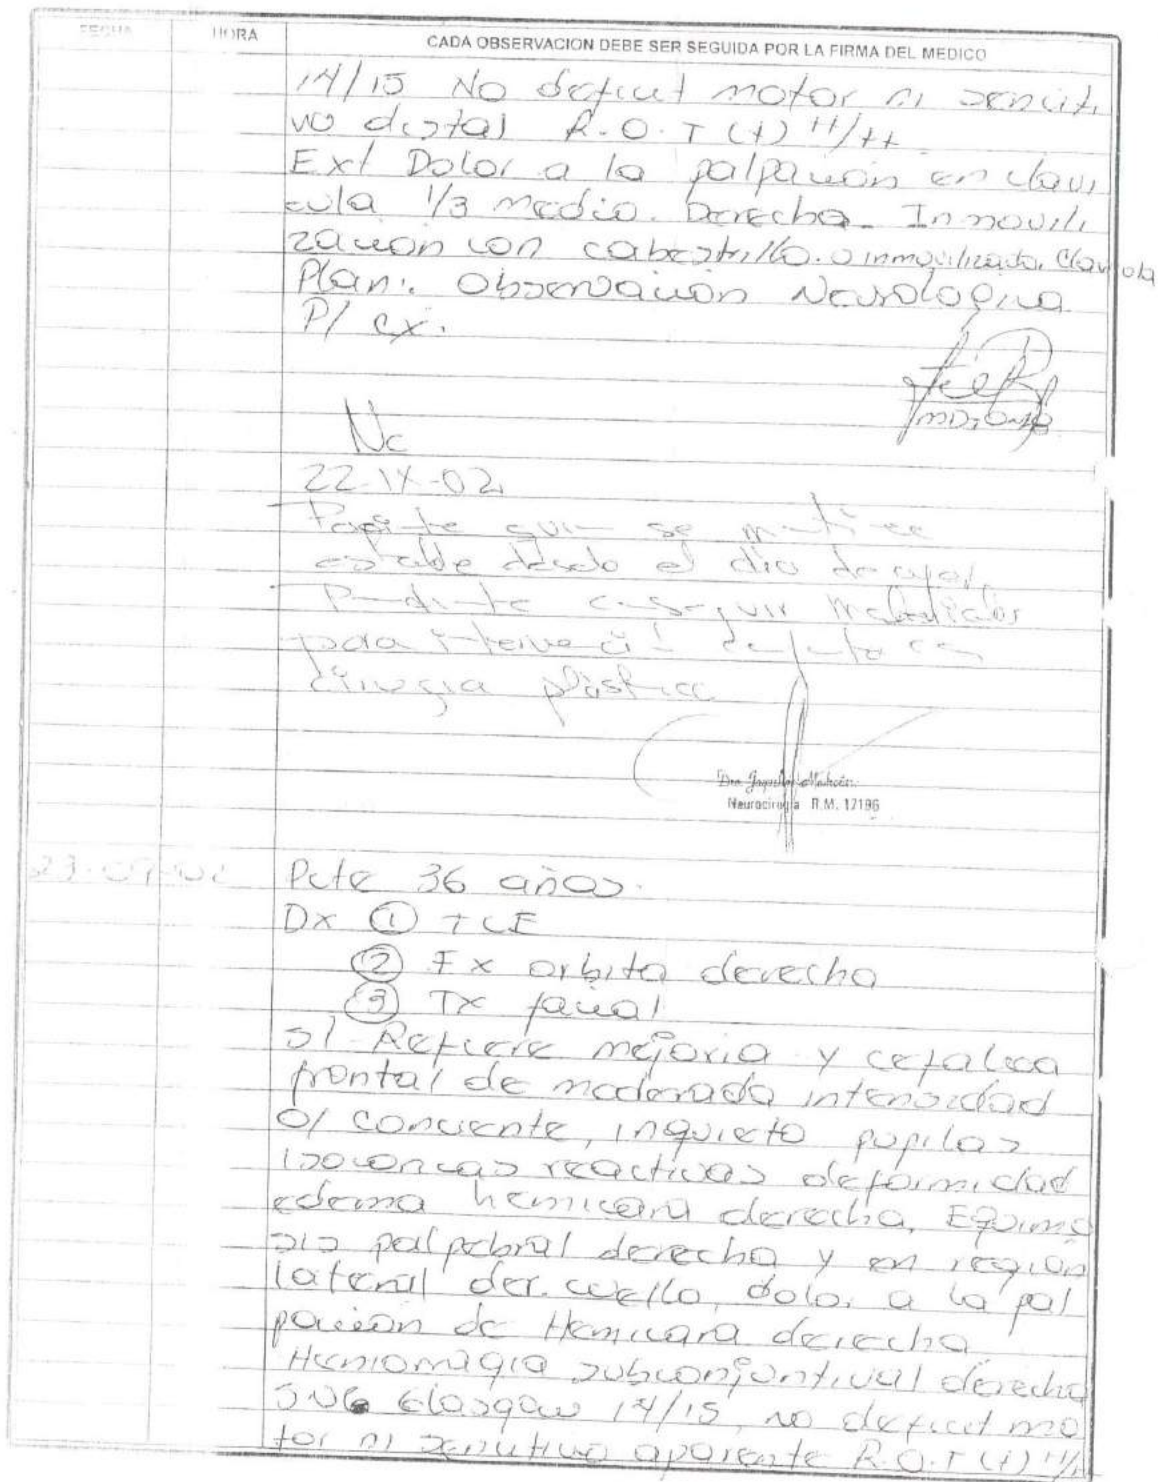 FECHA HORA CADA OBSERVACION DEBE SER SEGUIDA POR LA FIRMA DEL MEDICO
14/15 No deficit motor ni sensiti
vo distal R.O.T (+) ++/++
Ext Dolor a la palpación en clavi
cula 1/3 medio. Derecha. Inmovili
zación con cabestrillo. inmovilizado. Clavicula
Plan: Observación Neurologica
P/ cx.
Nc
22-IX-02.
Paciente quien se mantiene
estable desde el dia de ayer.
Pendiente conseguir Materiales
para intervención conjunta con
cirugia plástica
Dra.
Neurocirugía R.M. 17196
23-09-02 Pcte 36 años.
Dx ① TCE
② Fx orbita derecha
③ Tx facial
S/ Refiere mejoria y cefalea
frontal de moderada intensidad
O/ Conciente, inquieto pupilas
isocoricas reactivas deformidad
edema hemicara derecha, Equimo
sis palpebral derecha y en región
lateral der. cuello, dolor a la pal
pación de Hemicara derecha
Hemorragia subconjuntival derecha
SNC Glasgow 14/15, no deficit mo
tor ni sensitivo aparente R.O.T (+)